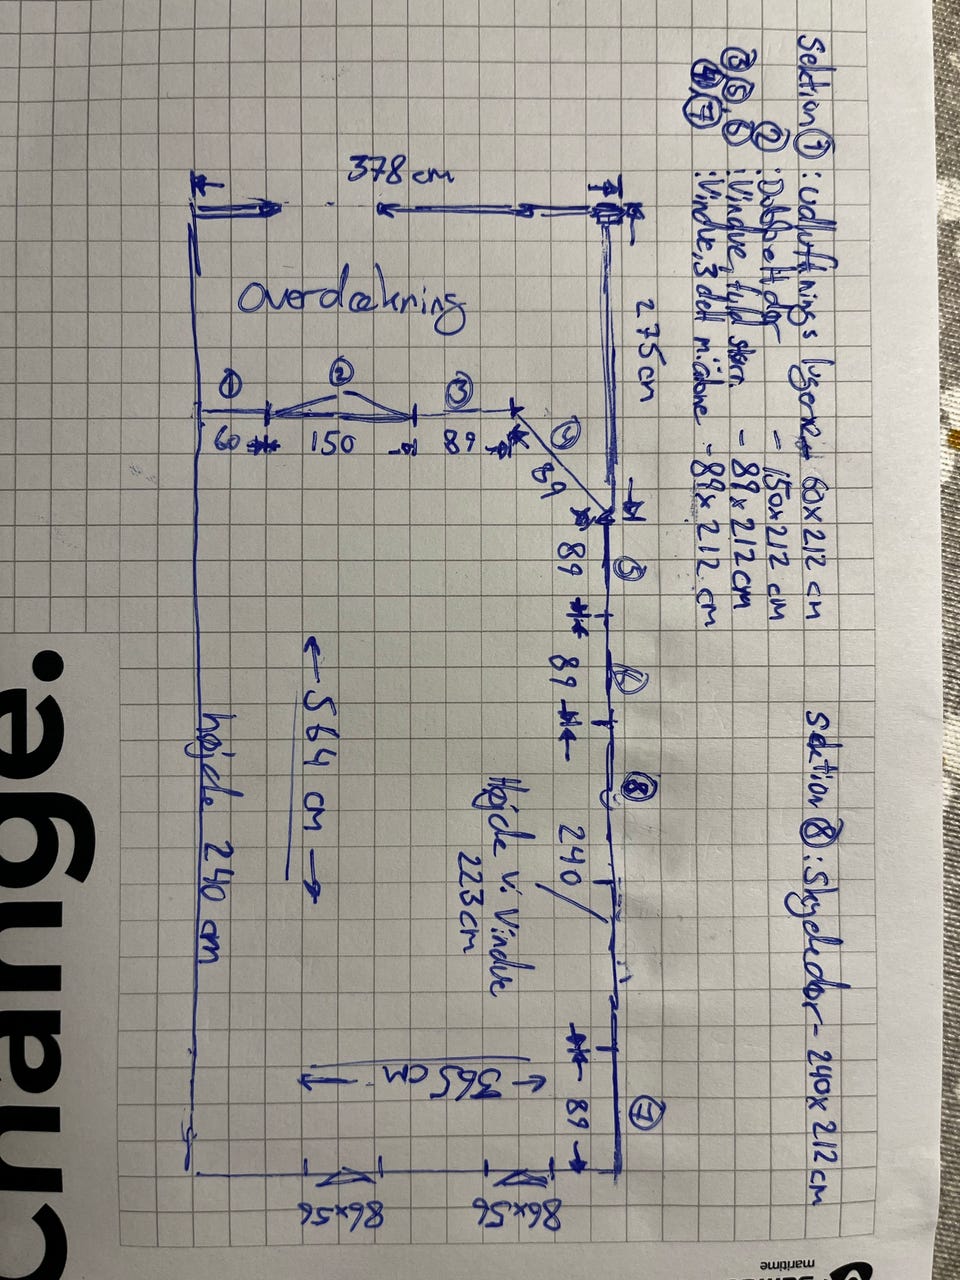 Sektion ① : udluftnings 60x212 cm
② : Dobbelt dør - 150x212 cm
③ ⑤, ⑥ : Vindue, fuld - 89x212cm
④, ⑦ : Vindue, 3 delt - 89x212 cm
Sektion ⑧ : Skydedør - 240x212cm
378 cm
275 cm
Overdækning
① ② ③
60 150 89
89
89
⑤
89
⑥
⑧
240
89
⑦
Højde v. Vindue
223cm
←564 cm→
højde 240 cm
365cm
86x56
86x56
change.
maritime